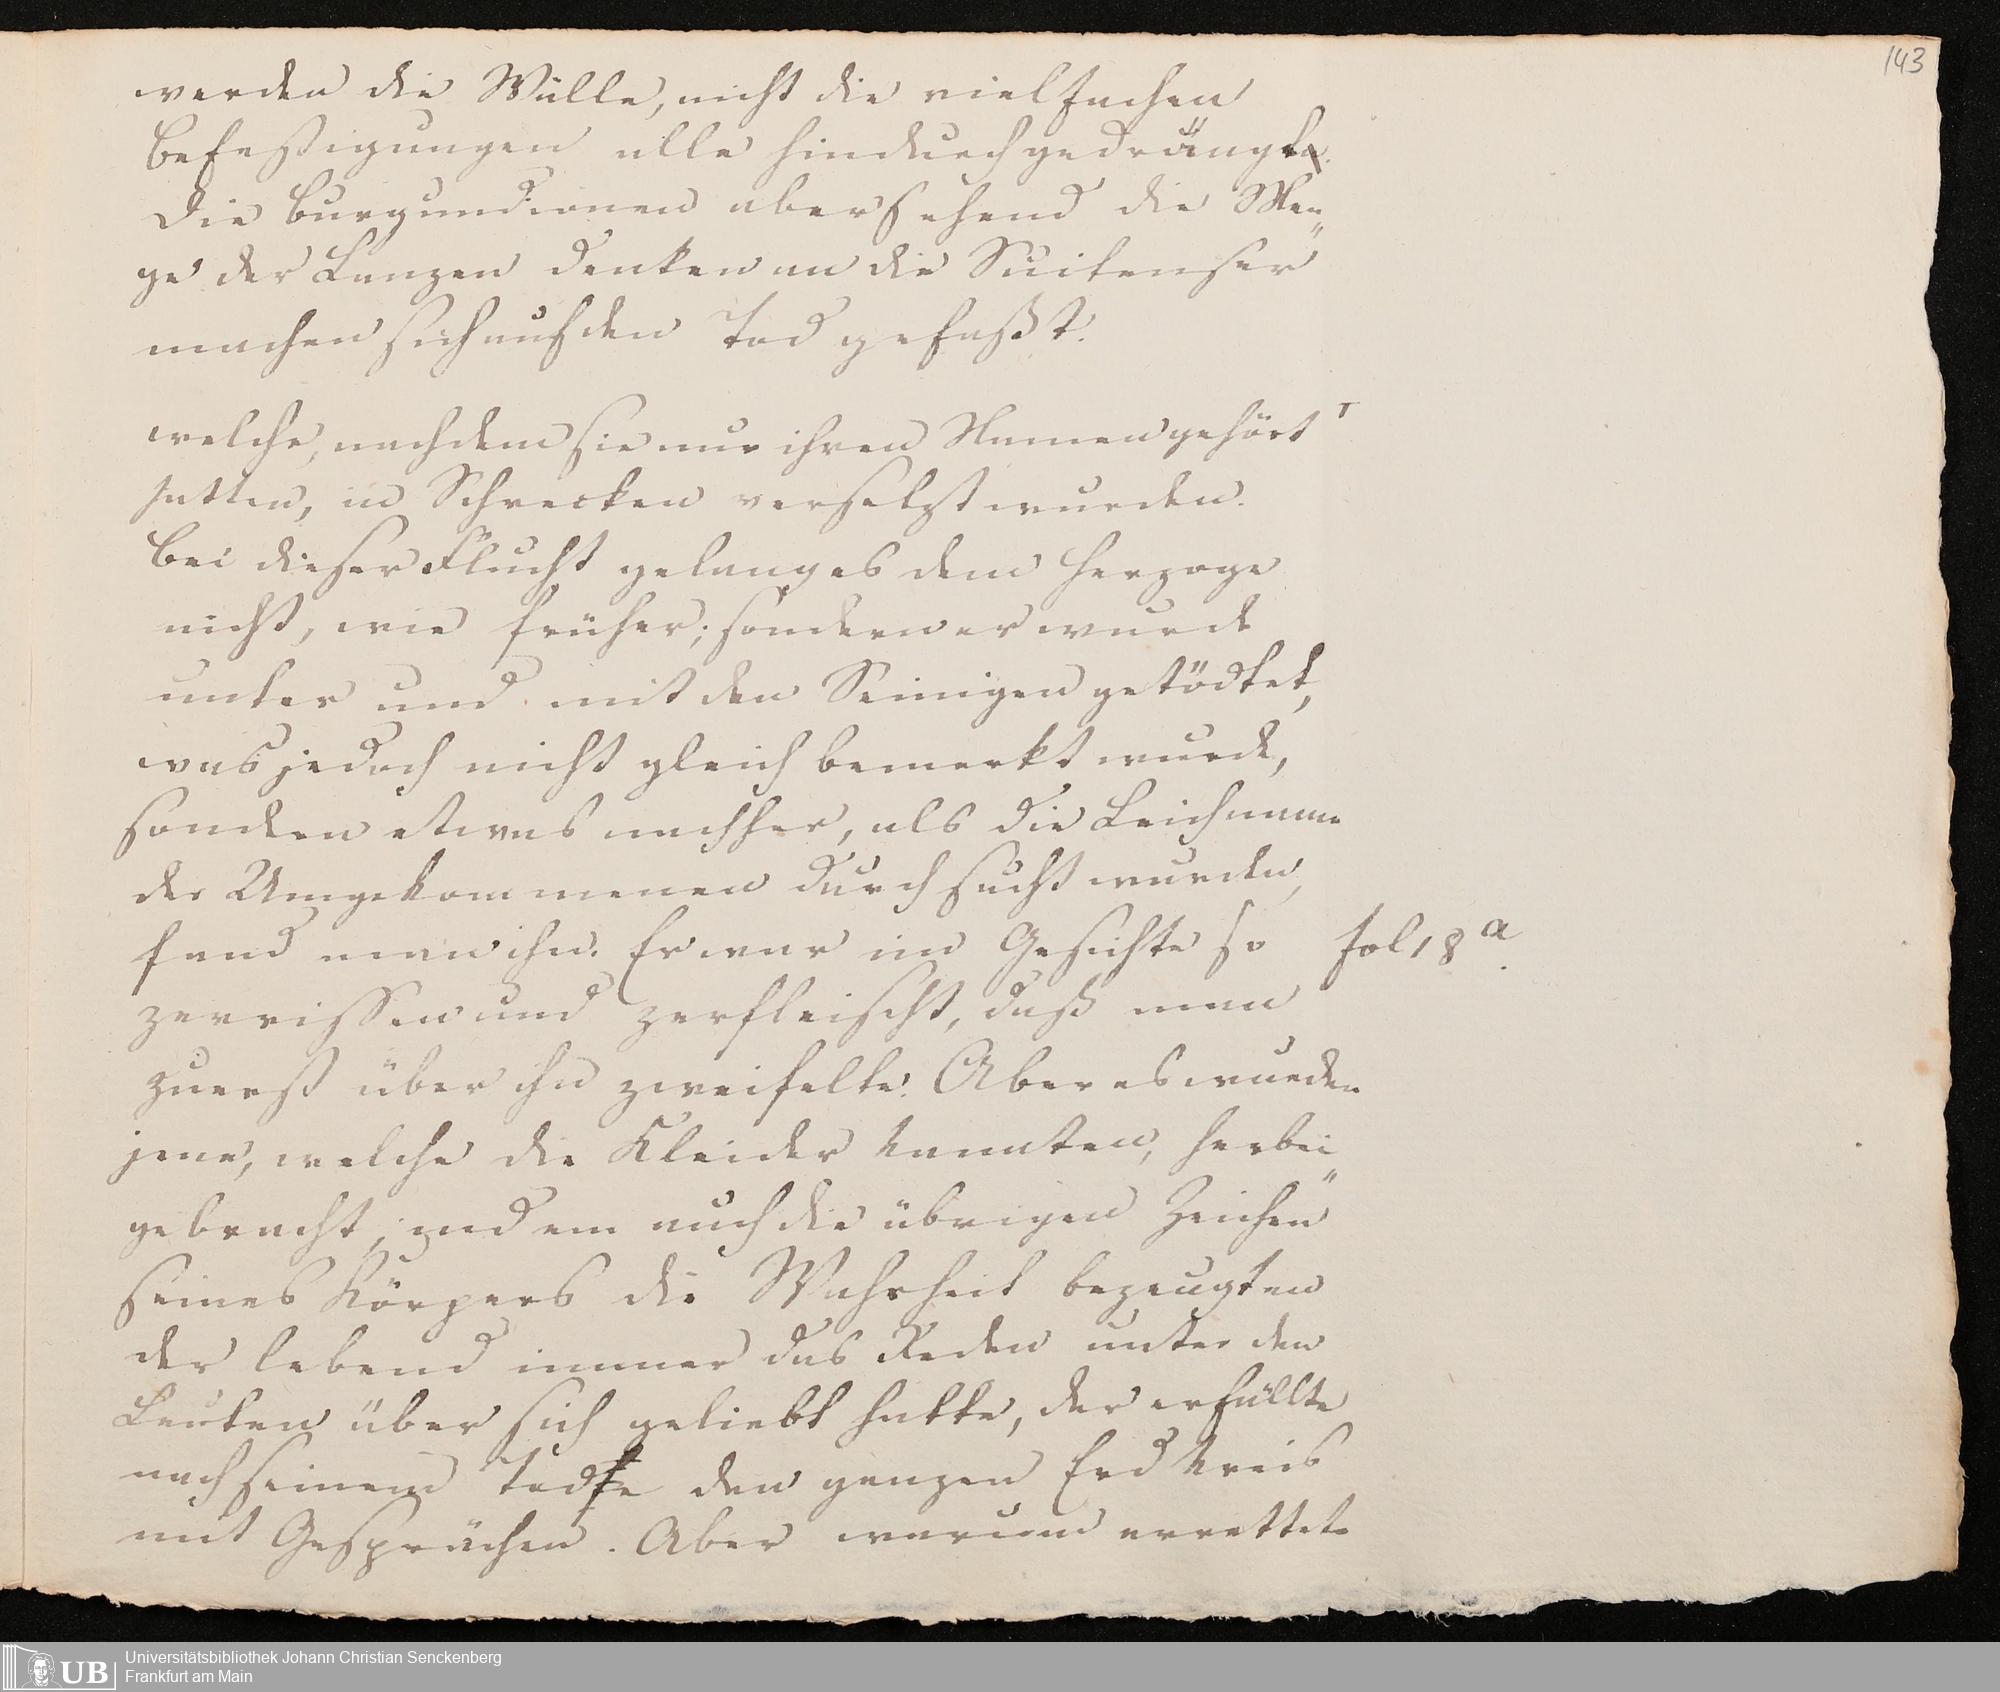 143
werden die Wälle, nicht die vielfachen
Befestigungen alle hindurchgedrängt.
Die Burgundionen aber sehend die Men„
ge der Lanzen denken an die Suitenser
machen sich auf den Tod gefaßt.
welche, nachdem sie nur ihren Namen gehört
hatten, in Schrecken versetzt wurden.
Bei dieser Flucht gelang es dem Herzoge
nicht, wie früher; sondern er wurde
unter und mit den Seinigen getödtet,
was jedoch nicht gleich bemerkt wurde,
sondern etwas nachher, als die Leichname
der Umgekommenen durchsucht wurden,
fand man ihn. Er war im Gesichte so
fol 18 a.
zerrissen und zerfleischt, daß man
zuerst über ihn zweifelte. Aber es wurden
jene, welche die Kleider kannten, herbei„
gebracht, indem auch die übrigen Zeichen
seines Körpers die Wahrheit bezeugten
der lebend immer das Reden unter den
Leuten über sich geliebt hatte, der erfüllte
nach seinem Tode den ganzen Erdkreis
mit Gesprächen. Aber warum errettete
UB
Universitätsbibliothek Johann Christian Senckenberg
Frankfurt am Main